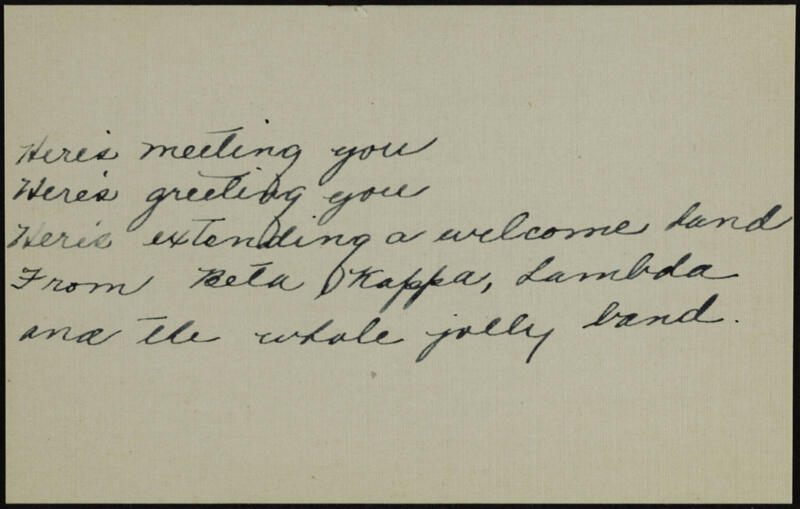 Here's meeting you
Here's greeting you
Here's extending a welcome hand
From Beta Kappa, Lambda
and the whole jolly band.